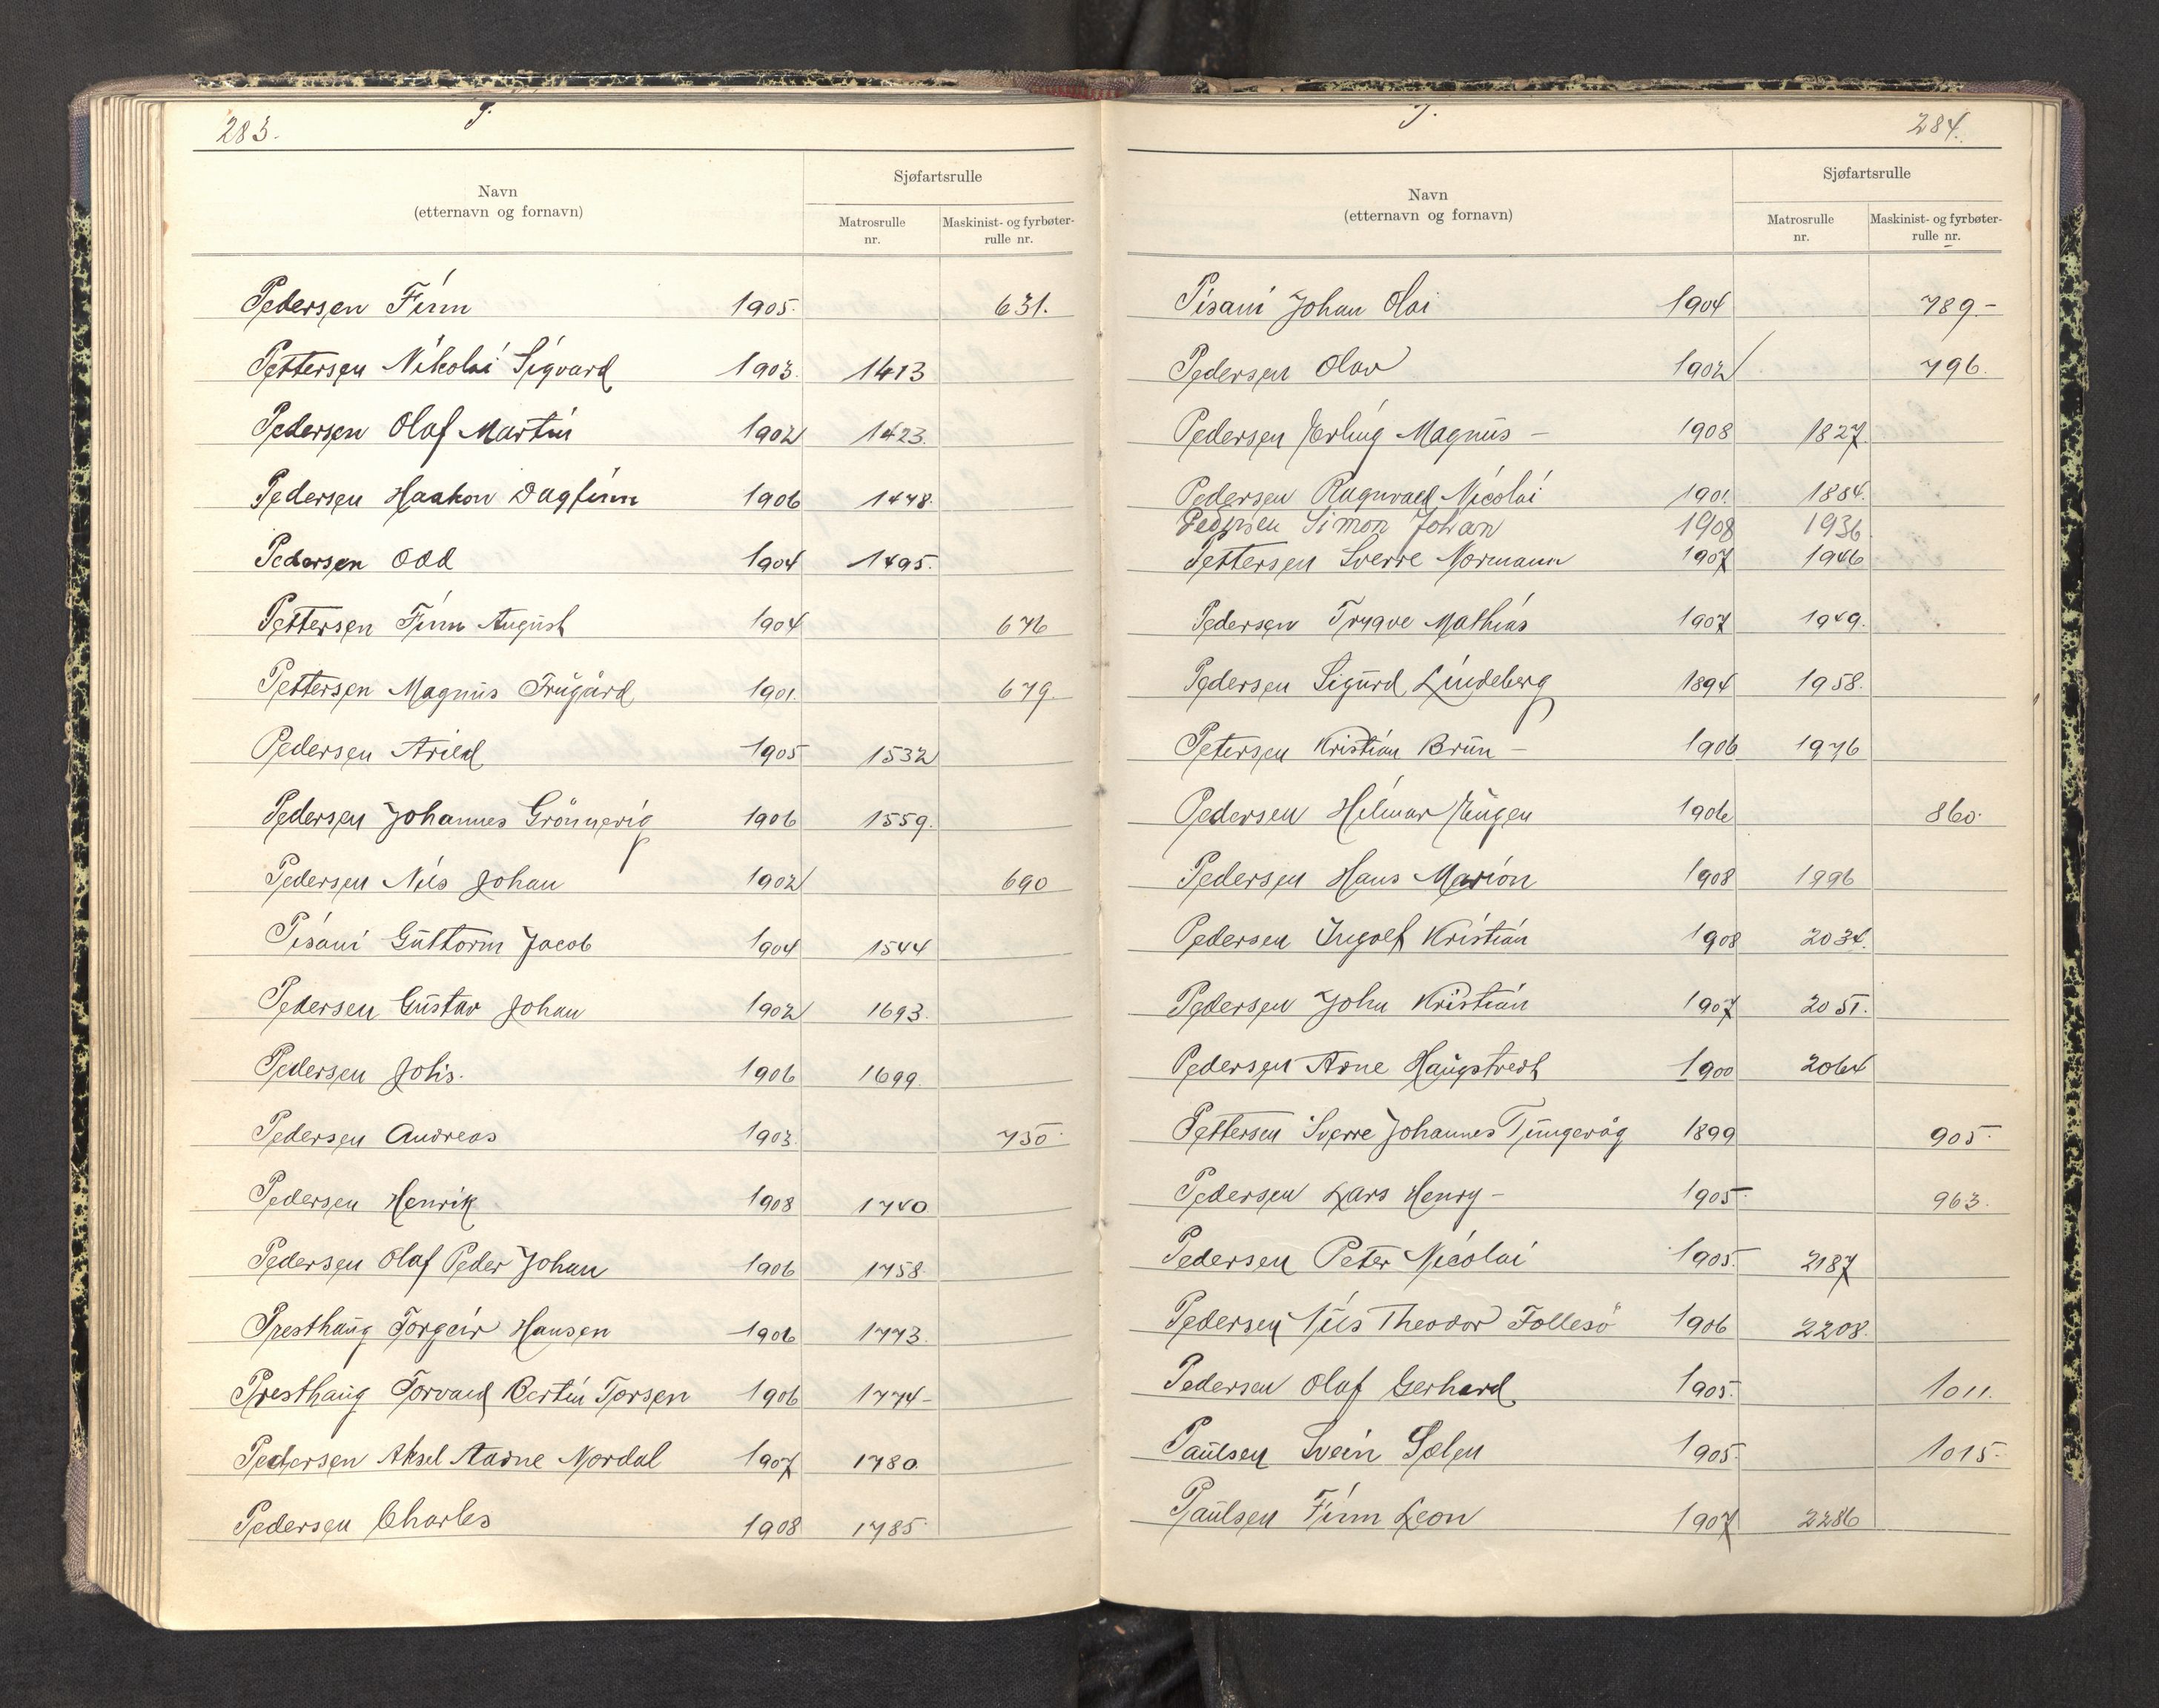 283.
P.
Navn
(etternavn og fornavn)
Sjøfartsrulle
Matrosrulle nr.
Maskinist- og fyrbøter-rulle nr.
Pedersen Finn 1905. 631.
Pettersen Nikolai Sigvard 1903. 1413
Pedersen Olaf Martin 1902 1423.
Pedersen Haakon Dagfinn 1906 1478.
Pedersen Odd 1904 1495.
Pettersen Finn August 1904 676
Pettersen Magnus Frugård 1901. 679.
Pedersen Arild 1905 1532
Pedersen Johannes Grönnevig 1906 1559.
Pedersen Nils Johan 1902 690
Pisani Guttorm Jacob 1904 1544
Pedersen Gustav Johan 1902 1693.
Pedersen Johs. 1906 1699.
Pedersen Andreas 1903. 750.
Pedersen Henrik 1908 1740
Pedersen Olaf Peder Johan 1906 1758.
Presthaug Torgeir Hansen 1906 1773.
Presthaug Torvald Bertin Torsen 1906 1774-
Pedersen Aksel Aarne Nordal 1907 1780.
Pedersen Charles 1908 1785.
P.
284.
Navn
(etternavn og fornavn)
Sjøfartsrulle
Matrosrulle nr.
Maskinist- og fyrbøter-rulle nr.
Pisani Johan Olai 1904 789.-
Pedersen Olav 1902 796.
Pedersen Erling Magnus - 1908 1827.
Pedersen Ragnvald Nicolai 1901. 1884.
Pedersen Simon Johan 1908 1936.
Pettersen Sverre Normann 1907 1946
Pedersen Trygve Mathias 1907 1949.
Pedersen Sigurd Lindeberg 1894 1958.
Petersen Kristian Brun - 1906 1976
Pedersen Hilmar Eugen 1906 860.
Pedersen Hans Marion 1908 1996
Pedersen Ingolf Kristian 1908 2034.
Pedersen John Kristian 1907 2051.
Pedersen Arne Haugstvedt 1900 2064
Pettersen Sverre Johannes Tungevåg 1899 905.
Pedersen Lars Henry - 1905. 963.
Pedersen Peter Nicolai 1905. 2187
Pedersen Nils Theodor Follesö 1906 2208.
Pedersen Olaf Gerhard 1905. 1011.
Paulsen Svein Sælen 1905. 1015.
Paulsen Finn Leon 1907 2286